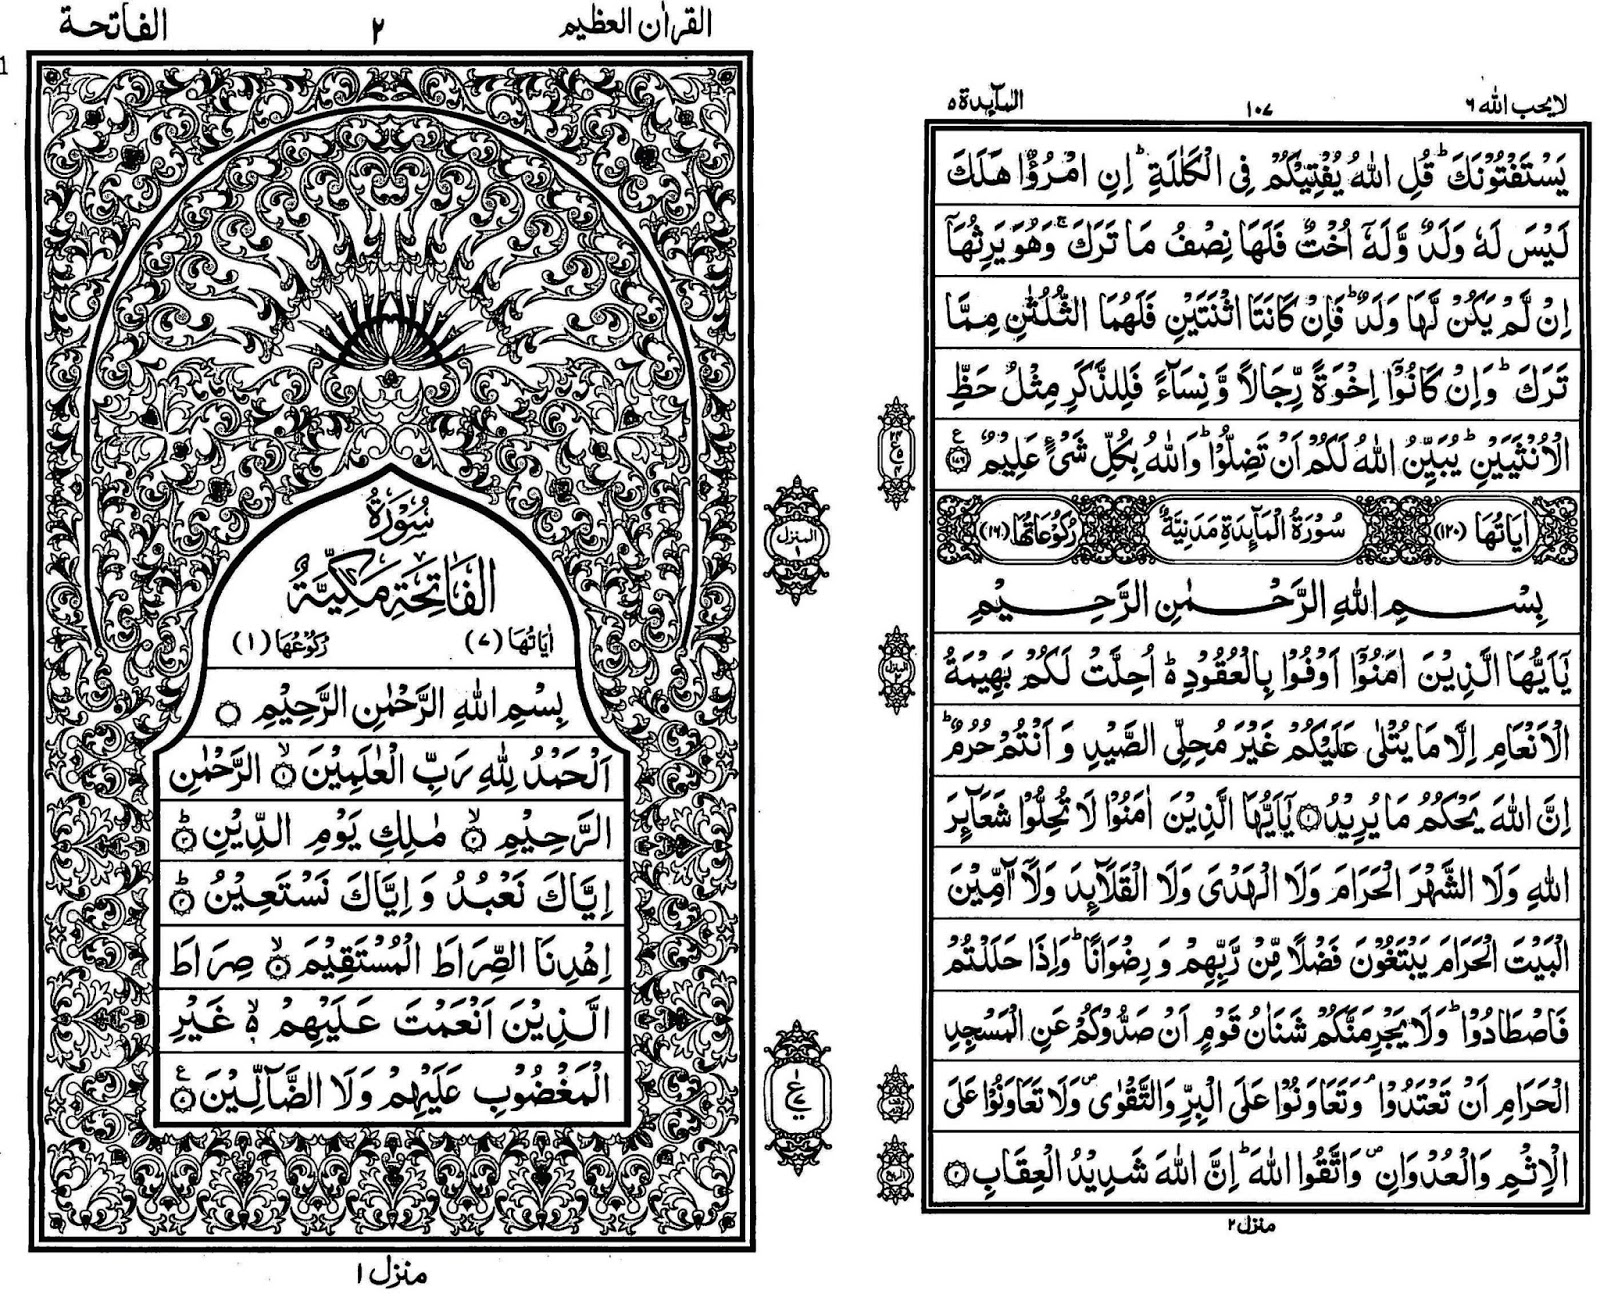 القرآن العظیم ٢ الفاتحة
1
سُوْرَةُ
الْفَاتِحَةِ مَكِّيَّةٌ
اٰيَاتُهَا (٧) رُكُوْعُهَا (١)
بِسْمِ اللهِ الرَّحْمٰنِ الرَّحِيْمِ
اَلْحَمْدُ لِلّٰهِ رَبِّ الْعٰلَمِيْنَ ۙ ١ الرَّحْمٰنِ
الرَّحِيْمِ ۙ ٢ مٰلِكِ يَوْمِ الدِّيْنِ ؕ ٣
اِيَّاكَ نَعْبُدُ وَ اِيَّاكَ نَسْتَعِيْنُ ؕ ٤
اِهْدِنَا الصِّرَاطَ الْمُسْتَقِيْمَ ۙ ٥ صِرَاطَ
الَّذِيْنَ اَنْعَمْتَ عَلَيْهِمْ ۙ۬ ۵ غَيْرِ
الْمَغْضُوْبِ عَلَيْهِمْ وَلَا الضَّآلِّيْنَ
المنزل ١
ع
منزل ١
لا يحب الله ٦ ١٠٧ المآئدة ٥
يَسْتَفْتُوْنَكَ ؕ قُلِ اللهُ يُفْتِيْكُمْ فِي الْكَلٰلَةِ ؕ اِنِ امْرُؤٌا هَلَكَ
لَيْسَ لَهٗ وَلَدٌ وَّلَهٗٓ اُخْتٌ فَلَهَا نِصْفُ مَا تَرَكَ ۚ وَهُوَ يَرِثُهَاۤ
اِنْ لَّمْ يَكُنْ لَّهَا وَلَدٌ ؕ فَاِنْ كَانَتَا اثْنَتَيْنِ فَلَهُمَا الثُّلُثٰنِ مِمَّا
تَرَكَ ؕ وَاِنْ كَانُوْۤا اِخْوَةً رِّجَالًا وَّنِسَآءً فَلِلذَّكَرِ مِثْلُ حَظِّ
الْاُنْثَيَيْنِ ؕ يُبَيِّنُ اللهُ لَكُمْ اَنْ تَضِلُّوْا ؕ وَاللهُ بِكُلِّ شَيْءٍ عَلِيْمٌ ١٧٦
اٰيَاتُهَا (١٢٠) سُوْرَةُ الْمَآئِدَةِ مَدَنِيَّةٌ رُكُوْعَاتُهَا (١٦)
بِسْمِ اللهِ الرَّحْمٰنِ الرَّحِيْمِ
يٰۤاَيُّهَا الَّذِيْنَ اٰمَنُوْۤا اَوْفُوْا بِالْعُقُوْدِ ؕ۬ ۵ اُحِلَّتْ لَكُمْ بَهِيْمَةُ
الْاَنْعَامِ اِلَّا مَا يُتْلٰى عَلَيْكُمْ غَيْرَ مُحِلِّي الصَّيْدِ وَ اَنْتُمْ حُرُمٌ ؕ
اِنَّ اللهَ يَحْكُمُ مَا يُرِيْدُ ١ يٰۤاَيُّهَا الَّذِيْنَ اٰمَنُوْا لَا تُحِلُّوْا شَعَآئِرَ
اللهِ وَلَا الشَّهْرَ الْحَرَامَ وَلَا الْهَدْيَ وَلَا الْقَلَآئِدَ وَلَاۤ آٰمِّيْنَ
الْبَيْتَ الْحَرَامَ يَبْتَغُوْنَ فَضْلًا مِّنْ رَّبِّهِمْ وَ رِضْوَانًا ؕ وَاِذَا حَلَلْتُمْ
فَاصْطَادُوْا ؕ وَلَا يَجْرِمَنَّكُمْ شَنَاٰنُ قَوْمٍ اَنْ صَدُّوْكُمْ عَنِ الْمَسْجِدِ
الْحَرَامِ اَنْ تَعْتَدُوْا ۘ وَتَعَاوَنُوْا عَلَى الْبِرِّ وَالتَّقْوٰى ۪ وَلَا تَعَاوَنُوْا عَلَى
الْاِثْمِ وَالْعُدْوَانِ ۪ وَاتَّقُوا اللهَ ؕ اِنَّ اللهَ شَدِيْدُ الْعِقَابِ ٢
منزل ٢